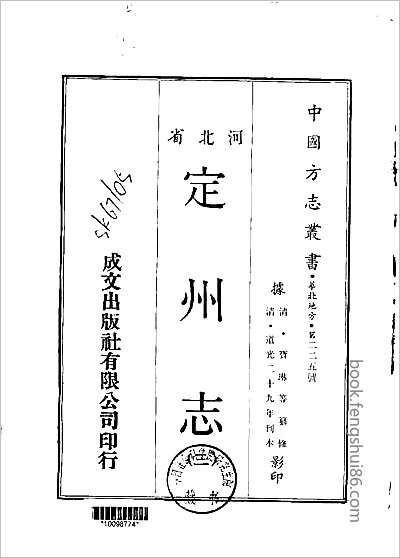 中國方志叢書・華北地方・第二二五號
據
清・寶琳等纂修
清・道光二十九年刊本
影印
河北省
定州志
成文出版社有限公司印行
*10098774*
book.fengshui86.com